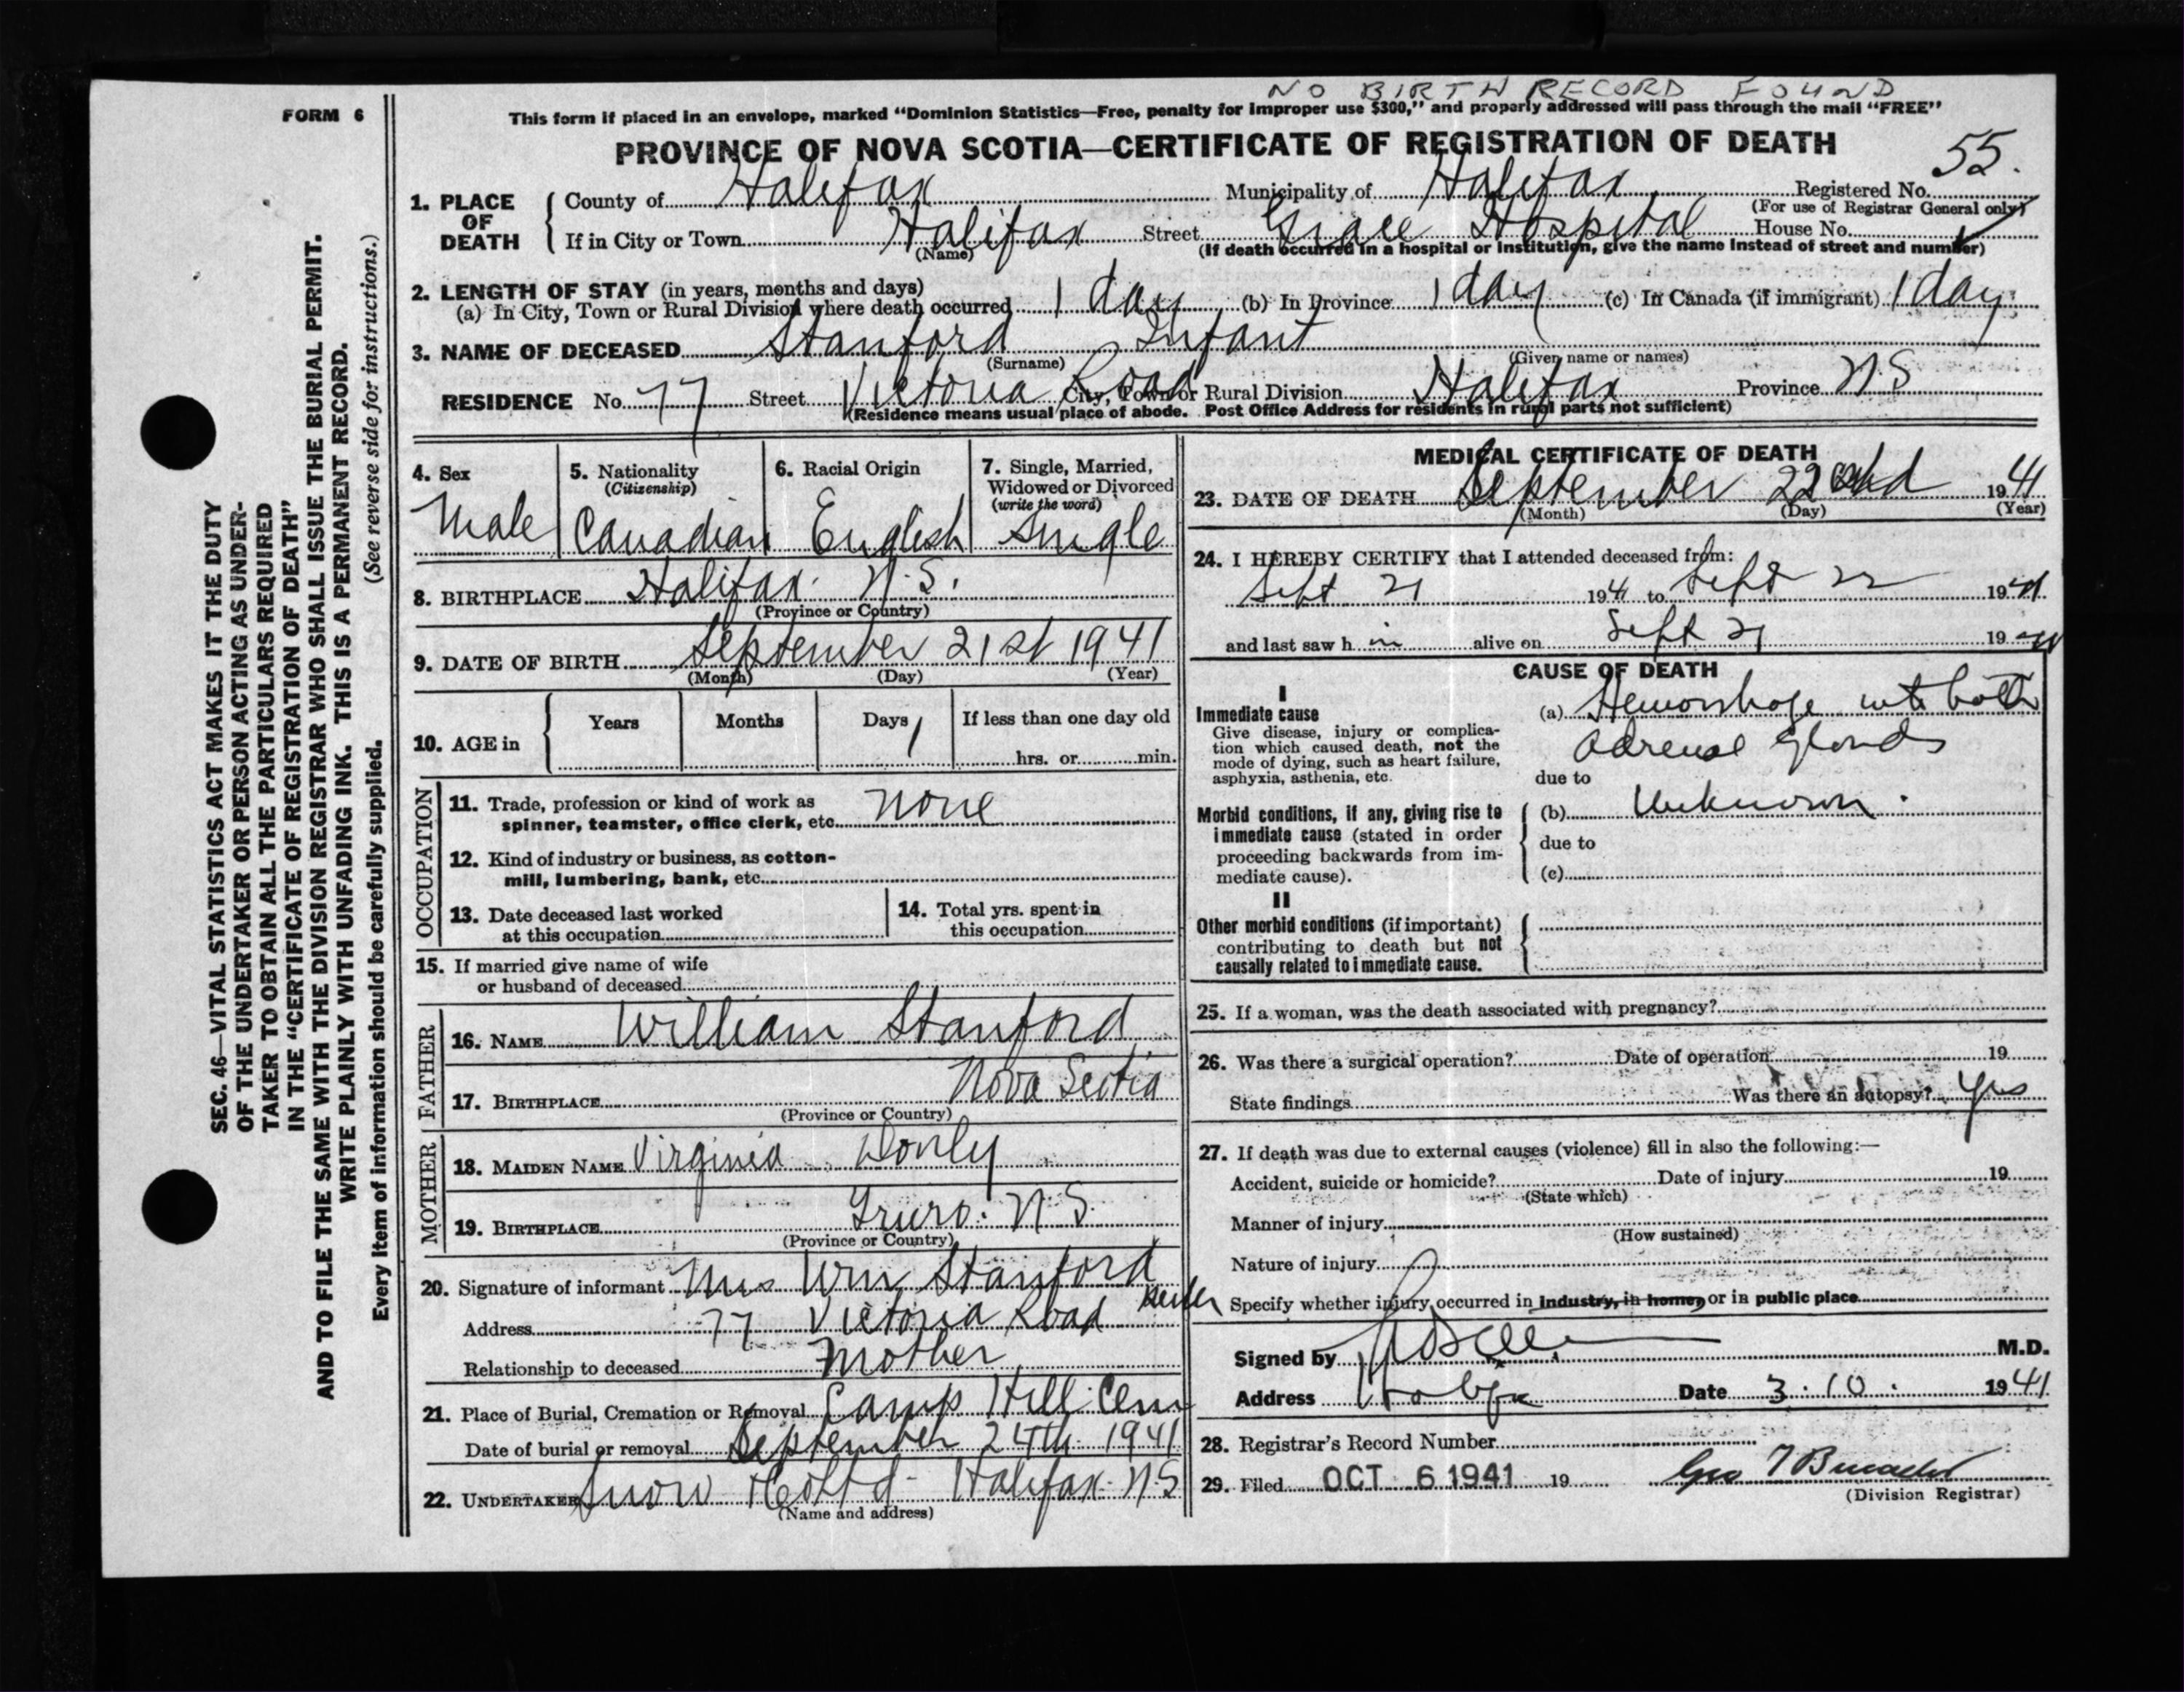 NO BIRTH RECORD FOUND
FORM 6
This form if placed in an envelope, marked "Dominion Statistics—Free, penalty for improper use $300," and properly addressed will pass through the mail "FREE"
PROVINCE OF NOVA SCOTIA—CERTIFICATE OF REGISTRATION OF DEATH
55.
1. PLACE OF DEATH
County of Halifax Municipality of Halifax Registered No.
(For use of Registrar General only)
If in City or Town Halifax Street Grace Hospital House No.
(Name) (If death occurred in a hospital or Institution, give the name instead of street and number)
2. LENGTH OF STAY (in years, months and days)
(a) In City, Town or Rural Division where death occurred 1 day (b) In Province 1 day (c) In Canada (if immigrant) 1 day
3. NAME OF DECEASED Stanford Infant
(Surname) (Given name or names)
RESIDENCE No. 77 Street Victoria Road City, Town or Rural Division Halifax Province N S
(Residence means usual place of abode. Post Office Address for residents in rural parts not sufficient)
4. Sex
Male
5. Nationality
(Citizenship)
Canadian
6. Racial Origin
English
7. Single, Married,
Widowed or Divorced
(write the word)
Single
8. BIRTHPLACE Halifax. N.S.
(Province or Country)
9. DATE OF BIRTH September 21st 1941
(Month) (Day) (Year)
10. AGE in
Years Months Days If less than one day old
1
hrs. or min.
OCCUPATION
11. Trade, profession or kind of work as
spinner, teamster, office clerk, etc. None
12. Kind of industry or business, as cotton-
mill, lumbering, bank, etc.
13. Date deceased last worked
at this occupation
14. Total yrs. spent in
this occupation
15. If married give name of wife
or husband of deceased
FATHER
16. NAME William Stanford
17. BIRTHPLACE Nova Scotia
(Province or Country)
MOTHER
18. MAIDEN NAME Virginia Donly
19. BIRTHPLACE Truro. N S.
(Province or Country)
20. Signature of informant Mrs Wm Stanford
Address 77 Victoria Road
Relationship to deceased Mother
21. Place of Burial, Cremation or Removal Camp Hill Cem
Date of burial or removal September 24th 1941
22. UNDERTAKER Snow & Co Ltd - Halifax. N S
(Name and address)
MEDICAL CERTIFICATE OF DEATH
23. DATE OF DEATH September 22nd 1941
(Month) (Day) (Year)
24. I HEREBY CERTIFY that I attended deceased from:
Sept 21 1941 to Sept 22 1941
and last saw h im alive on Sept 21 1941
CAUSE OF DEATH
I
Immediate cause
Give disease, injury or complica-
tion which caused death, not the
mode of dying, such as heart failure,
asphyxia, asthenia, etc.
(a) Hemorrhage into both
adrenal glands
due to
Morbid conditions, if any, giving rise to
immediate cause (stated in order
proceeding backwards from im-
mediate cause).
(b) Unknown.
due to
(c)
II
Other morbid conditions (if important)
contributing to death but not
causally related to immediate cause.
25. If a woman, was the death associated with pregnancy?
26. Was there a surgical operation? Date of operation 19
State findings Was there an autopsy? Yes
27. If death was due to external causes (violence) fill in also the following:—
Accident, suicide or homicide? Date of injury 19
(State which)
Manner of injury
(How sustained)
Nature of injury
Specify whether injury occurred in industry, in home, or in public place
Signed by M.D.
Address Halifax Date 3.10. 1941
28. Registrar's Record Number
29. Filed OCT 6 1941 19 Geo
(Division Registrar)
SEC. 46—VITAL STATISTICS ACT MAKES IT THE DUTY
OF THE UNDERTAKER OR PERSON ACTING AS UNDER-
TAKER TO OBTAIN ALL THE PARTICULARS REQUIRED
IN THE "CERTIFICATE OF REGISTRATION OF DEATH"
AND TO FILE THE SAME WITH THE DIVISION REGISTRAR WHO SHALL ISSUE THE BURIAL PERMIT.
WRITE PLAINLY WITH UNFADING INK. THIS IS A PERMANENT RECORD.
Every item of information should be carefully supplied. (See reverse side for instructions.)